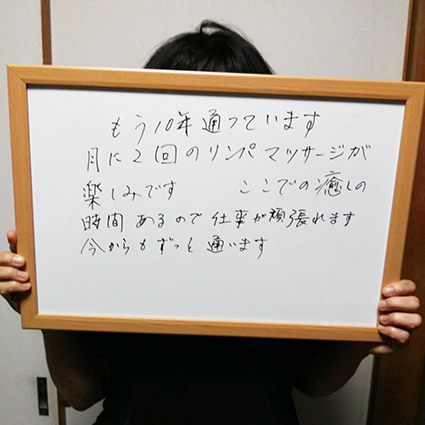 もう10年通っています
月に2回のリンパマッサージが
楽しみです ここでの癒しの
時間あるので仕事が頑張れます
今からもずっと通います